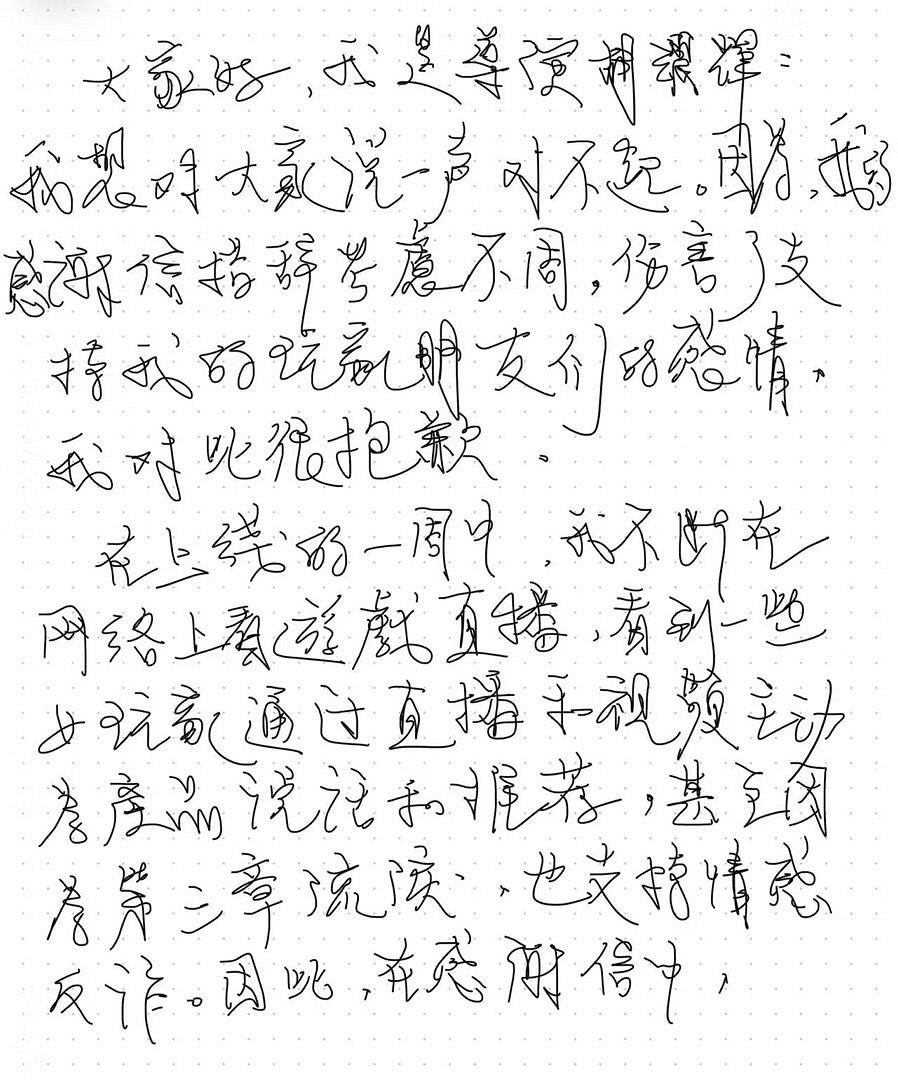 大家好，我是導演胡耀輝：
我想对大家说一声对不起。因為，我的
感謝信措辞考慮不周，伤害了支
持我的玩家朋友们的感情，
我对此很抱歉．
在上线的一周中，我不断在
网络上看遊戲直播，看到一些
女玩家通过直播和視頻主动
為產品说话和推荐，甚至因
為第三章流淚，也支持情感
反诈。因此，在感謝信中，